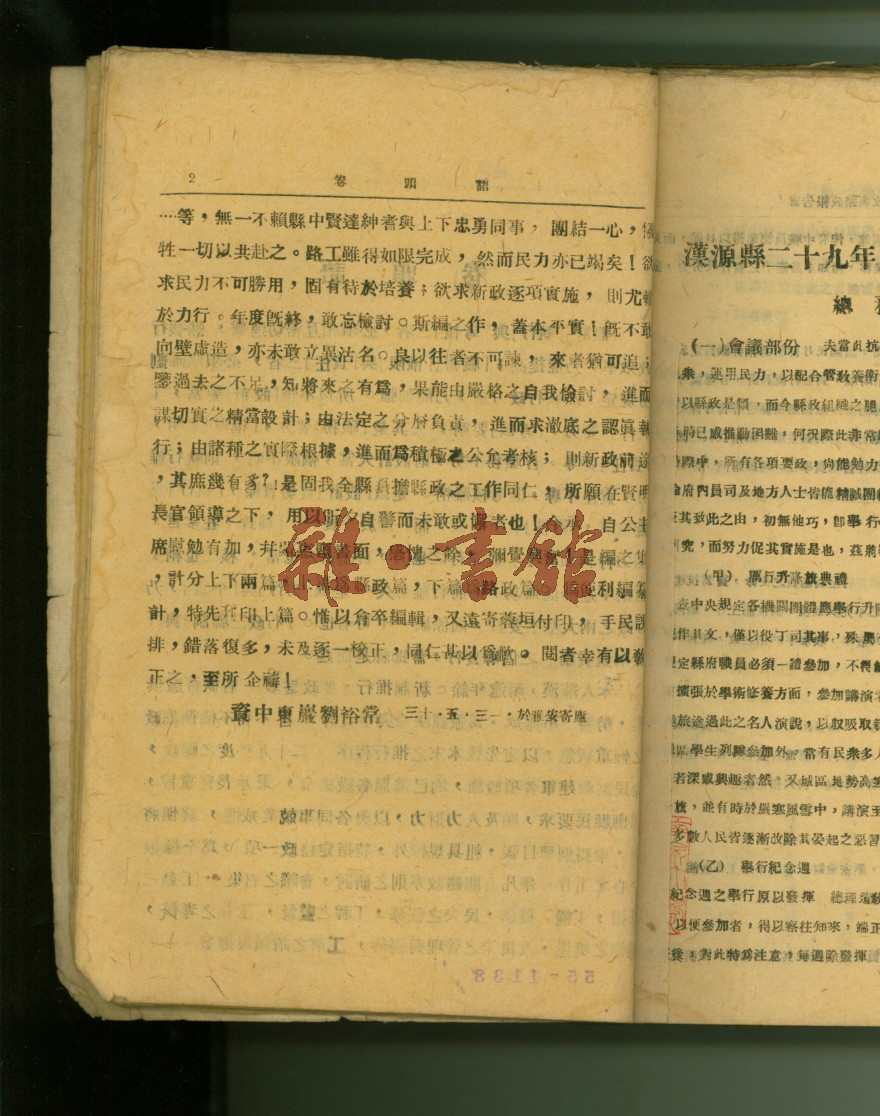 2 卷頭語
…等，無一不賴縣中賢達紳耆與上下忠勇同事，團結一心，犧
牲一切以共赴之。路工雖得如限完成，然而民力亦已竭矣！欲
求民力不可勝用，固有待於培養；欲求新政逐項實施，則尤
於力行。年度旣終，敢忘檢討。斯編之作，蓋本平實！旣不敢
向壁虛造，亦未敢立異沽名。良以往者不可諫，來者猶可追；
鑒過去之不足，知將來之有爲，果能由嚴格之自我檢討，進而
謀切實之精當設計；由法定之分層負責，進而求澈底之認眞執
行；由諸種之實際根據，進而爲積極之公允考核；則新政前途
，其庶幾有豸？！是固我全縣負擔縣政之工作同仁，所願在賢明
長官領導之下，用以昕夕自警而未敢或懈者也！余承 自公主
席慰勉有加，幷 題書面，感愧之餘，彌覺興奮！是編之集
，計分上下兩篇，上篇爲縣政篇，下篇爲路政篇，爲便利編纂
計，特先刊印上篇。惟以倉卒編輯，又遠寄蓉垣付印，手民誤
排，錯落復多，未及逐一校正，同仁甚以爲歉。閱者幸有以敎
正之，至所企禱！
資中東巖劉裕常 三十·五·三一·於雅安寄廬
55-1138
雜·書館
漢源縣二十九年
總
(一)會議部份 夫當此抗
民衆，運用民力，以配合管敎養衛
以縣政是賴，而今縣政組織之
時已感推動困難，何況際此非常
際中，所有各項要政，尙能勉力
府內員司及地方人士皆能精誠團結
其致此之由，初無他巧，卽舉行
究，而努力促其實施是也，茲將
(甲) 厲行升降旗典禮
中央規定各機關團體應舉行升降
作具文，僅以役丁司其事，殊
定縣府職員必須一禮參加，不得
擴張於學術修養方面，參加講演者
旅途過此之名人演說，以収吸取
區學生列隊參加外，當有民衆多人
若深感興趣者然。又城區地勢高寒
旗，並有時於嚴寒風雪中，講演至
多數人民皆逐漸改除其晏起之惡習
(乙) 舉行紀念週
紀念週之舉行原以發揮 總理遺敎
以便參加者，得以察往知來，端正
後，對此特爲注意，每週除發揮